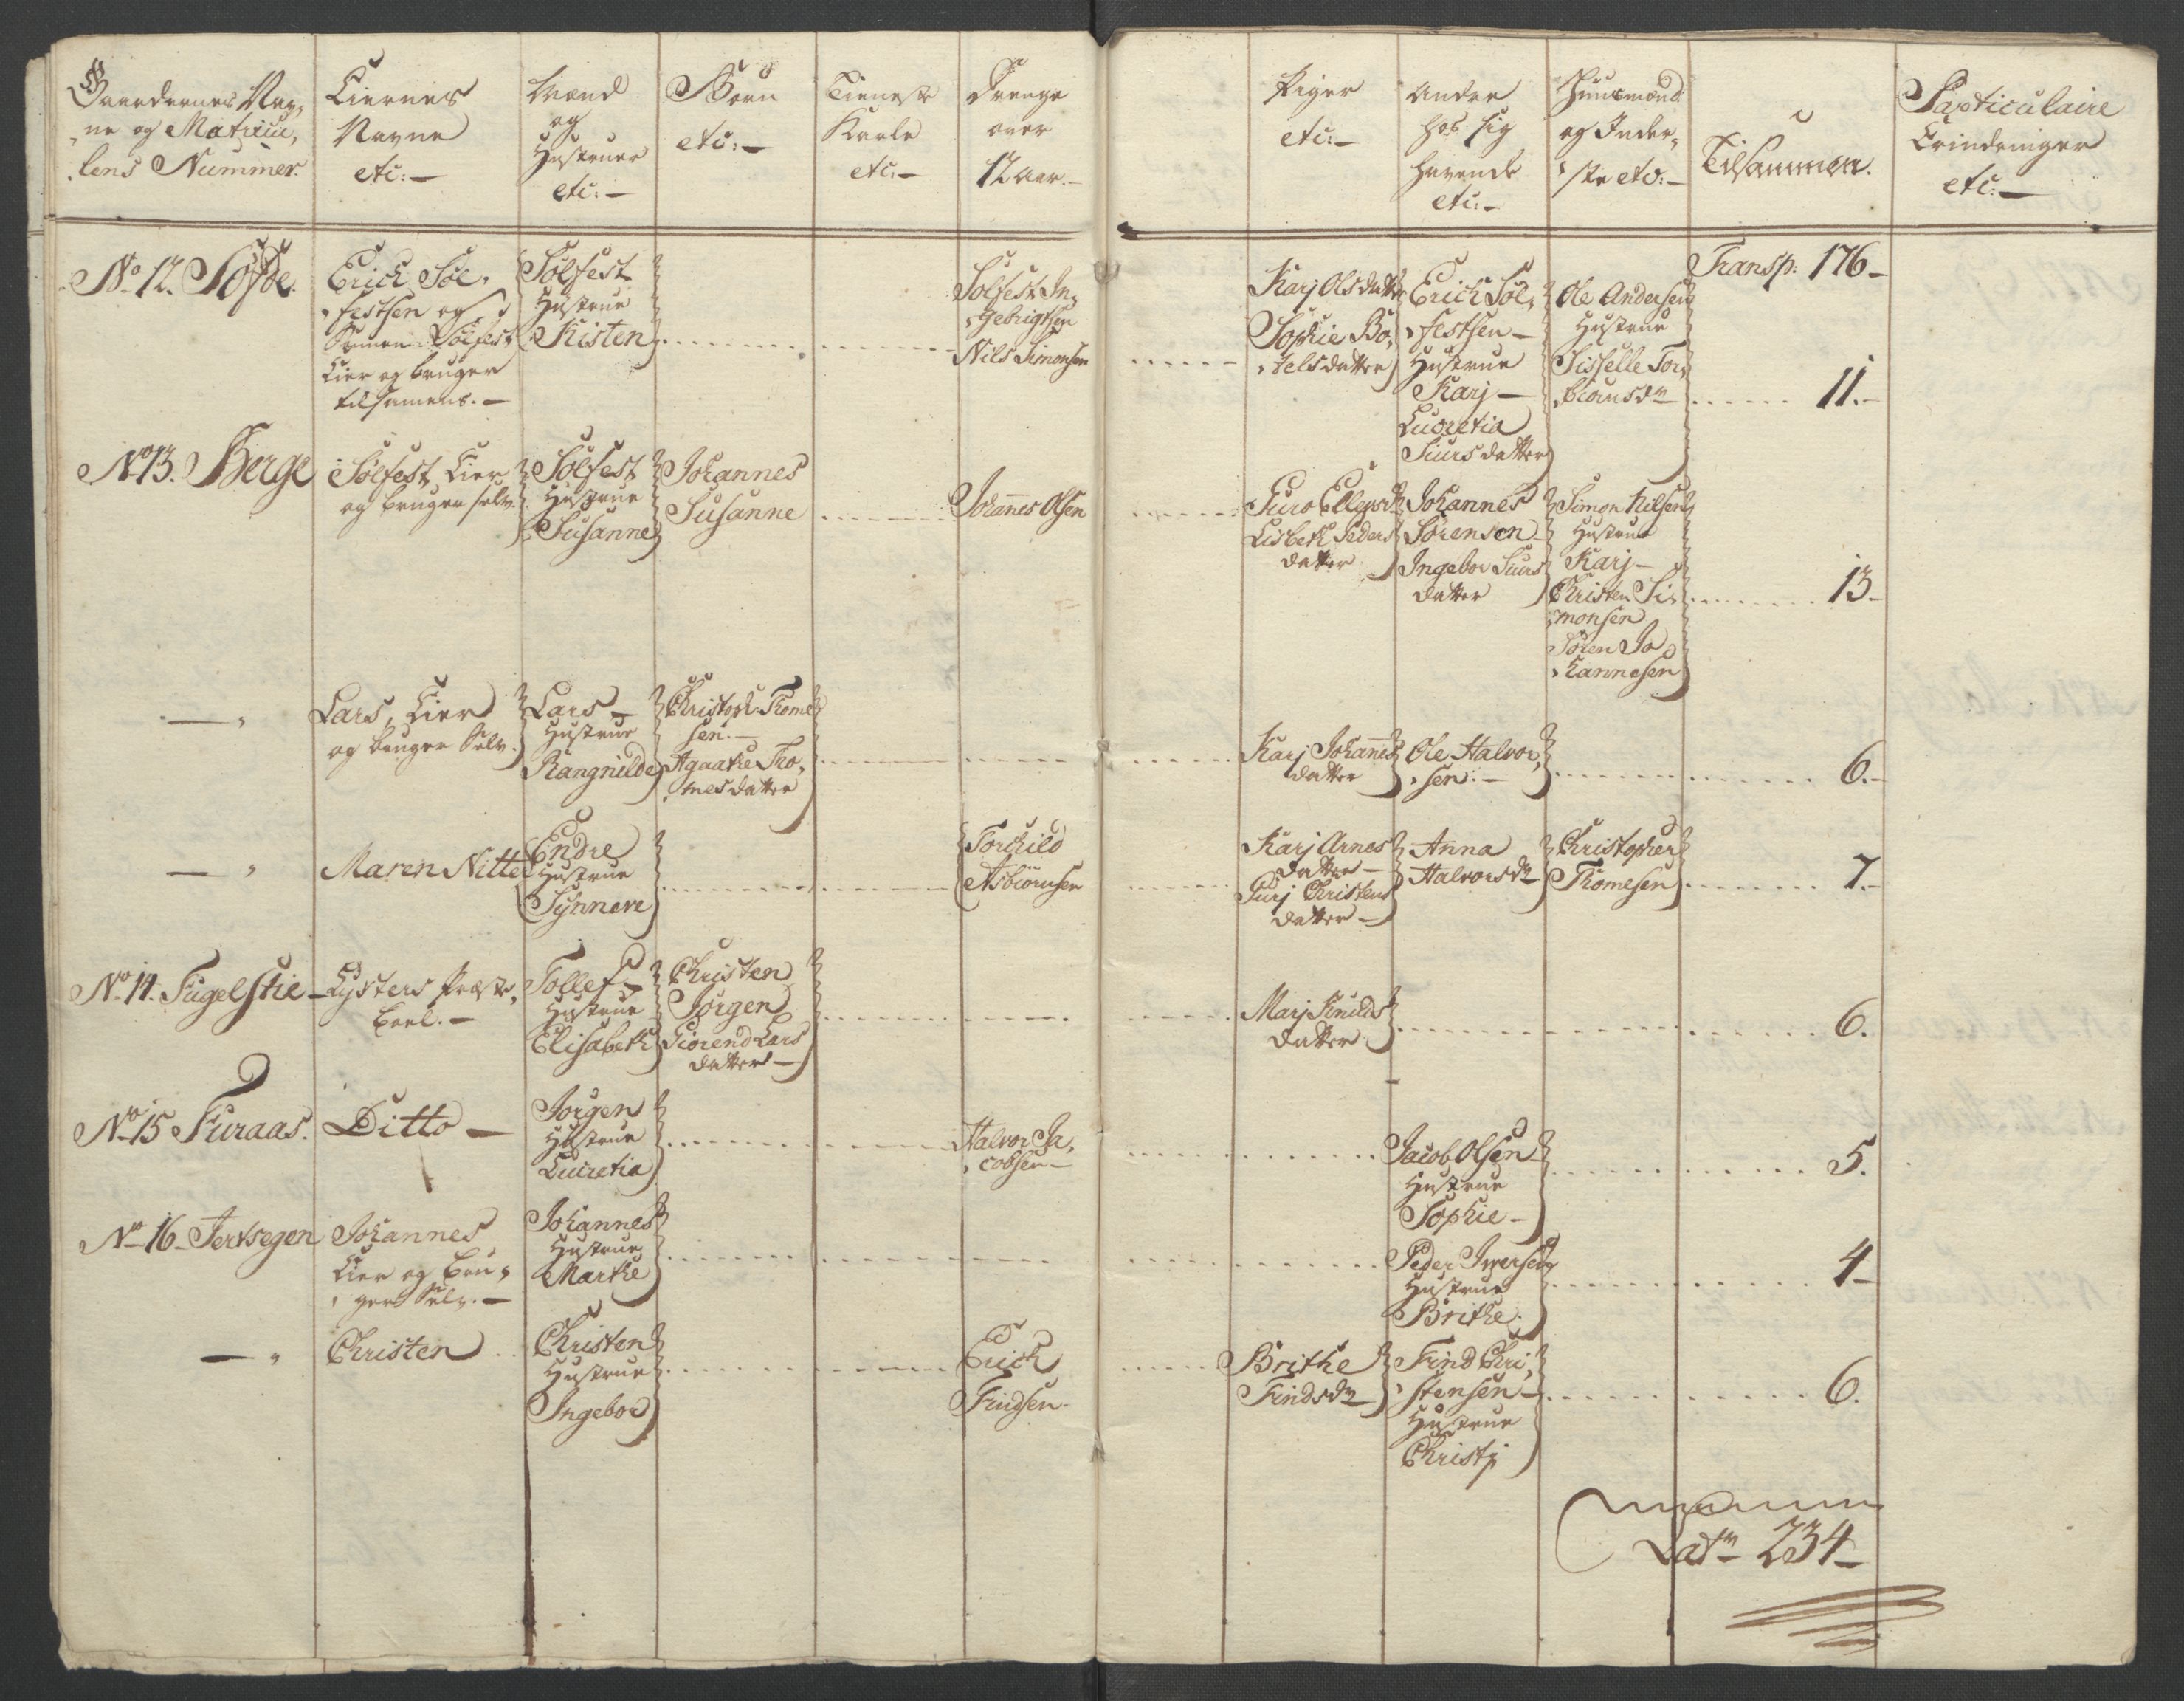 Gaardernes Nav,
ne og Matricu,
lens Nummer.
Eiernes
Navne
etc:—
Mænd
og
Hustruer
etc:—
Børn
etc:—
Tieneste
Karle
etc:—
Drenge
over
12 Aar.—
Piger
etc:—
Andre
hos sig
havende
etc:—
Huusmænd
og Inder,
ste etc:—
Tilsammen.
Particulaire
Erindringer
etc:—
Transp: 176—
No 12. Tofde
Erich Søl,
festsen og
Sønnen Sølfest
Eier og bruger
tilsamens.—
Sølfest
Hustrue
Kisten
Solfest In,
gebrigtsen
Nils Simonsen
Karj Olsdatter
Sophie Bo,
telsdatter
Erich Søl,
festsen—
Hustrue
Karj—
Lucretia
Siursdatter
Ole Andersen
Hustrue
Sisselle Tor,
biørnsdr
11.—
No 13. Berge
Sølfest Eier
og bruger selv.
Sølfest
Hustrue
Susanne
Johannes
Susanne
Johannes Olsen
Guro Ellefsdr
Lisbeth Peders
datter
Johannes
Sørensen
Ingebor Siurs
datter
Simon Nilsen
Hustrue
Karj—
Christen Si,
monsen
Søren Jo,
hannesen
13—
— "
Lars, Eier
og bruger Selv.
Lars—
Hustrue
Rangnilde
Christoph Thome
sen.—
Agaathe Tho,
mesdatter
Karj Johannes
datter
Ole Halvor,
sen.—
6.—
— "
Maren Nitter
Endre
Hustrue
Synneve
Torchild
Asbiørnsen
Karj Arnes
datter—
Gurj Christens
datter—
Anna
Halvorsdr
Christopher
Thomesen
7.—
No 14. Fugelstie
Lysters Præste,
boel.—
Tollef—
Hustrue
Elisabeth
Christen
Jørgen
Giørend Lars
datter—
Marj Knuds
datter
6.
No 15 Furaas.
Ditto—
Jørgen
Hustrue
Lucretia
Halvor Ja,
cobsen—
Jacob Olsen
Hustrue
Sophie—
5.
No 16— Jertsegen
Johannes
Eier og bru,
ger Selv.—
Johannes
Hustrue
Marthe
Peder Iversen
Hustrue
Brithe.
4—
— "
Christen
Christen
Hustrue
Ingebor
Erich
Findsen—
Brithe
Findsdr
Find Chri,
stensen—
Hustrue
Christj
6.
Latr— 234—